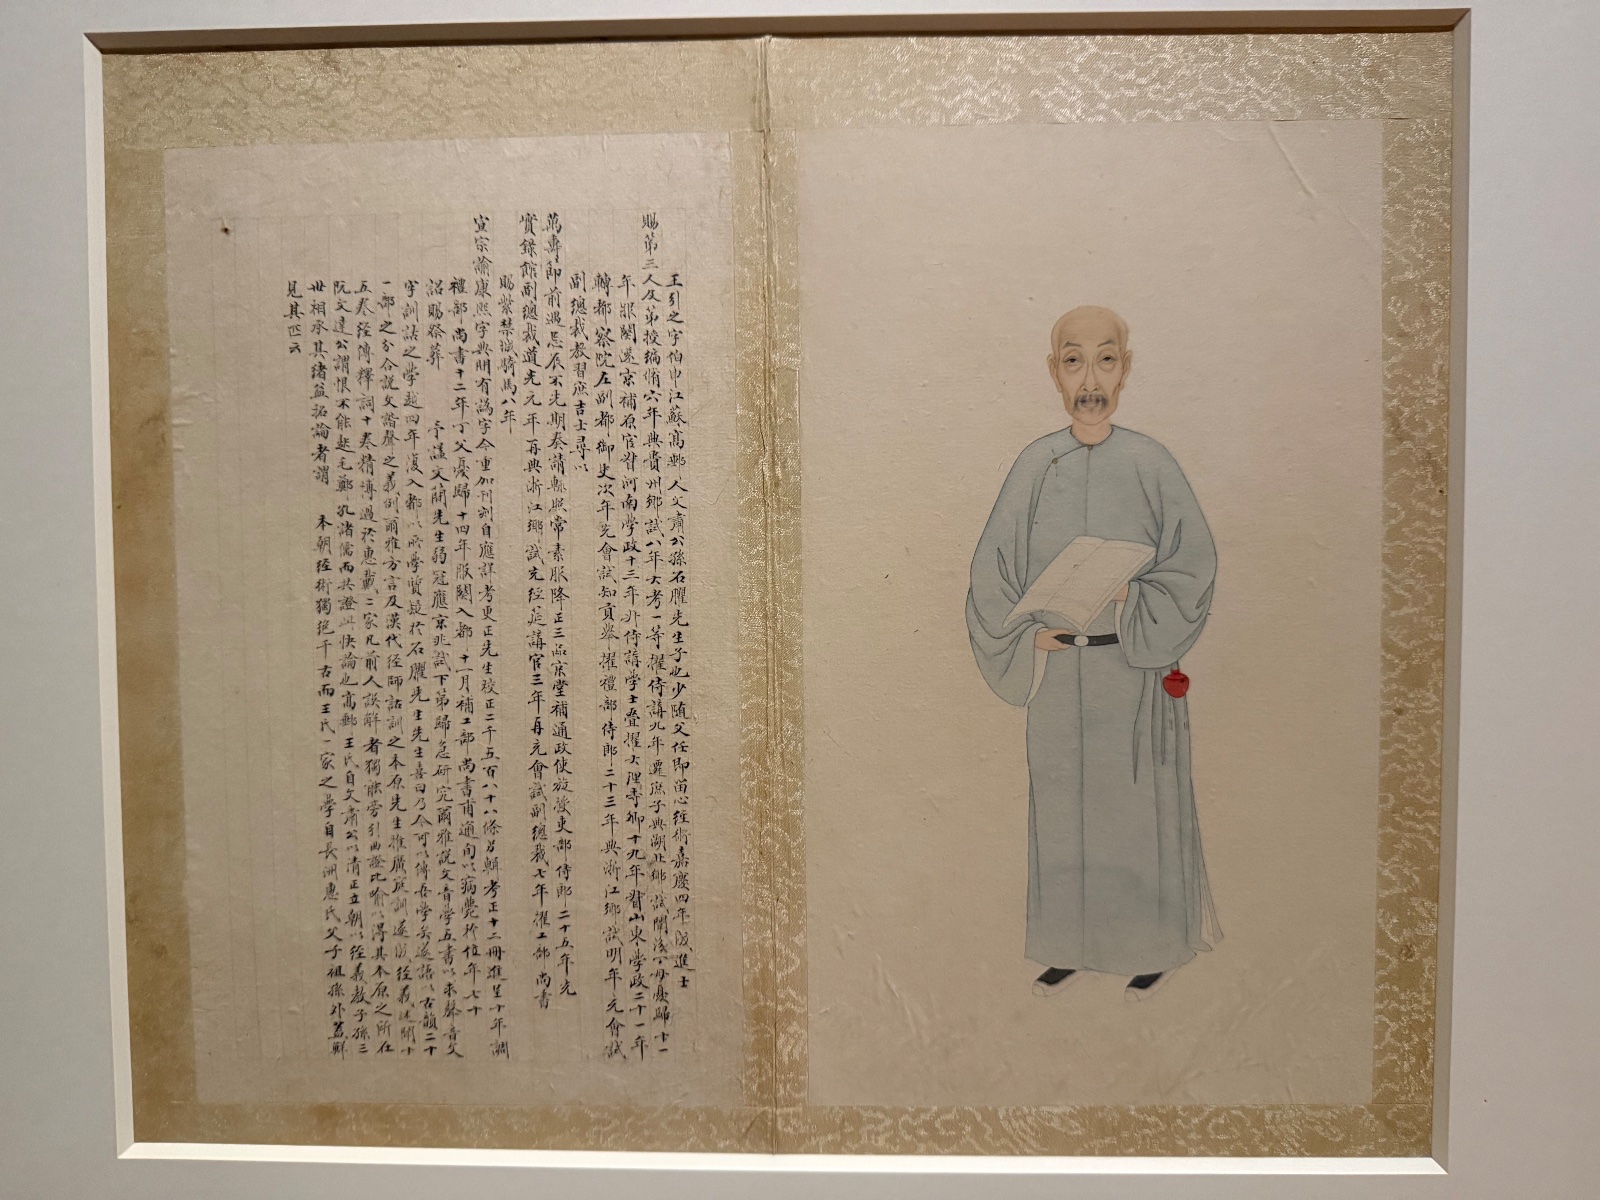 王引之字伯申江蘇高郵人文肅公孫石臞先生子也少隨父任即留心經術嘉慶四年成進士
賜第三人及第授編脩六年典貴州鄉試八年大考一等擢侍講九年遷庶子典湖北鄉試闈後丁母憂歸十一
年服闋還京補原官督河南學政十三年升侍講學士叠擢大理寺卿十九年督山東學政二十一年
轉都察院左副都御史次年充會試知貢舉擢禮部侍郎二十三年典浙江鄉試明年充會試
副總裁教習庶吉士尋以
萬壽節前遇忌辰不先期奏請縣照常素服降正三品京堂補通政使旋授吏部侍郎二十五年充
實錄館副總裁道光元年再典浙江鄉試充經筵講官三年再充會試副總裁七年擢工部尚書
賜紫禁城騎馬八年
宣宗諭康熙字典間有譌字今重加刊刻自應詳考更正先生校正二千五百八十八條另輯考正十二冊進呈十年調
禮部尚書十二年丁父憂歸十四年服闋入都十一月補工部尚書甫適旬以病薨於位年六十
詔賜祭葬 予謚文簡先生弱冠應京兆試下第歸急研究爾雅說文音學五書以求聲音文
字訓詁之學越四年復入都以所學質疑於石臞先生先生喜曰乃今可以傳吾學矣遂語以古韻二十
一部之分合說文諧聲之義例爾雅方言及漢代經師詁訓之本原先生推廣庭訓遂成經義述聞十
五卷經傳釋詞十卷精博過於惠戴二家凡前人誤解者獨能旁引曲證比喻以得其本原之所在
阮文達公謂恨不能起毛鄭孔諸儒而共證此快論也高郵王氏自文肅公以清正立朝以經義教子孫三
世相承其緒益拓論者謂 本朝經術獨絕千古而王氏一家之學自長洲惠氏父子祖孫外蓋鮮
見其匹云